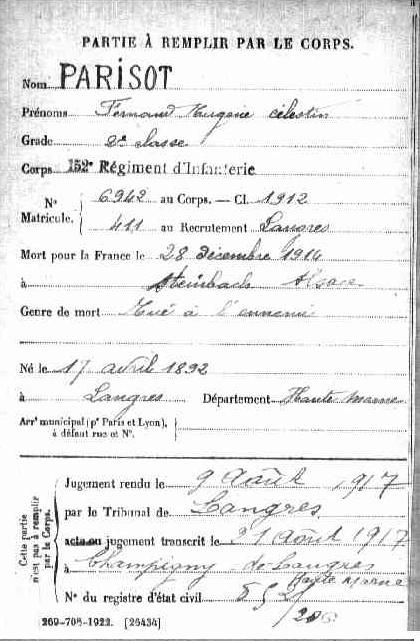 PARTIE À REMPLIR PAR LE CORPS.
Nom PARISOT
Prénoms Fernand Eugène Célestin
Grade 2e classe
Corps 152e Régiment d'Infanterie
N° Matricule. 6942 au Corps. — Cl. 1912
411 au Recrutement Langres
Mort pour la France le 28 décembre 1914
à Steinbach Alsace
Genre de mort Tué à l'ennemi
Né le 17 avril 1892
à Langres Département Haute Marne
Arrt municipal (pr Paris et Lyon),
à défaut rue et N°.
Cette partie n'est pas à remplir par le Corps.
Jugement rendu le 9 Août 1917
par le Tribunal de Langres
acte ou jugement transcrit le 31 Août 1917
à Champigny les Langres
Haute Marne
N° du registre d'état civil
269-708-1922. [26434]